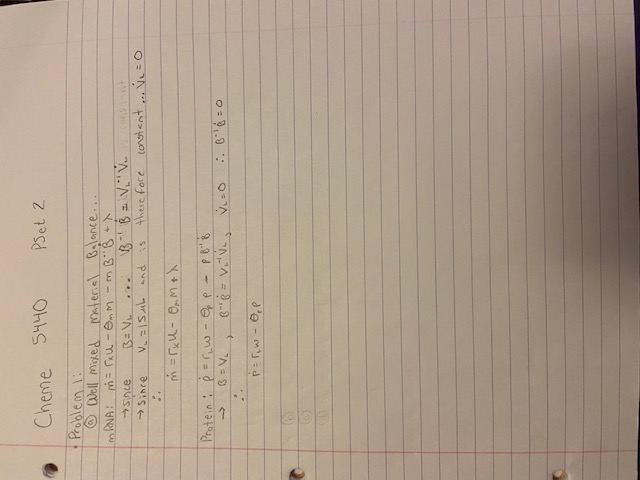 Cheme 5440 PSet 2
Problem 1:
ⓐ Well mixed Material Balance...
mRNA: ṁ = rₓu - θₘm - mB⁻¹Ḃ + λ
→ since B = V_L ... B⁻¹Ḃ = V_L⁻¹V̇_L
→ Since V_L = 15µL and is therefore constant ... V̇_L = 0
∴
ṁ = rₓu - θₘm + λ
Protein: ṗ = r_L w - θₚp - pB⁻¹Ḃ
→ B = V_L, B⁻¹Ḃ = V_L⁻¹V̇_L, V̇_L = 0 ∴ B⁻¹Ḃ = 0
∴
ṗ = r_L w - θₚp
ⓑ
ⓒ
ⓓ